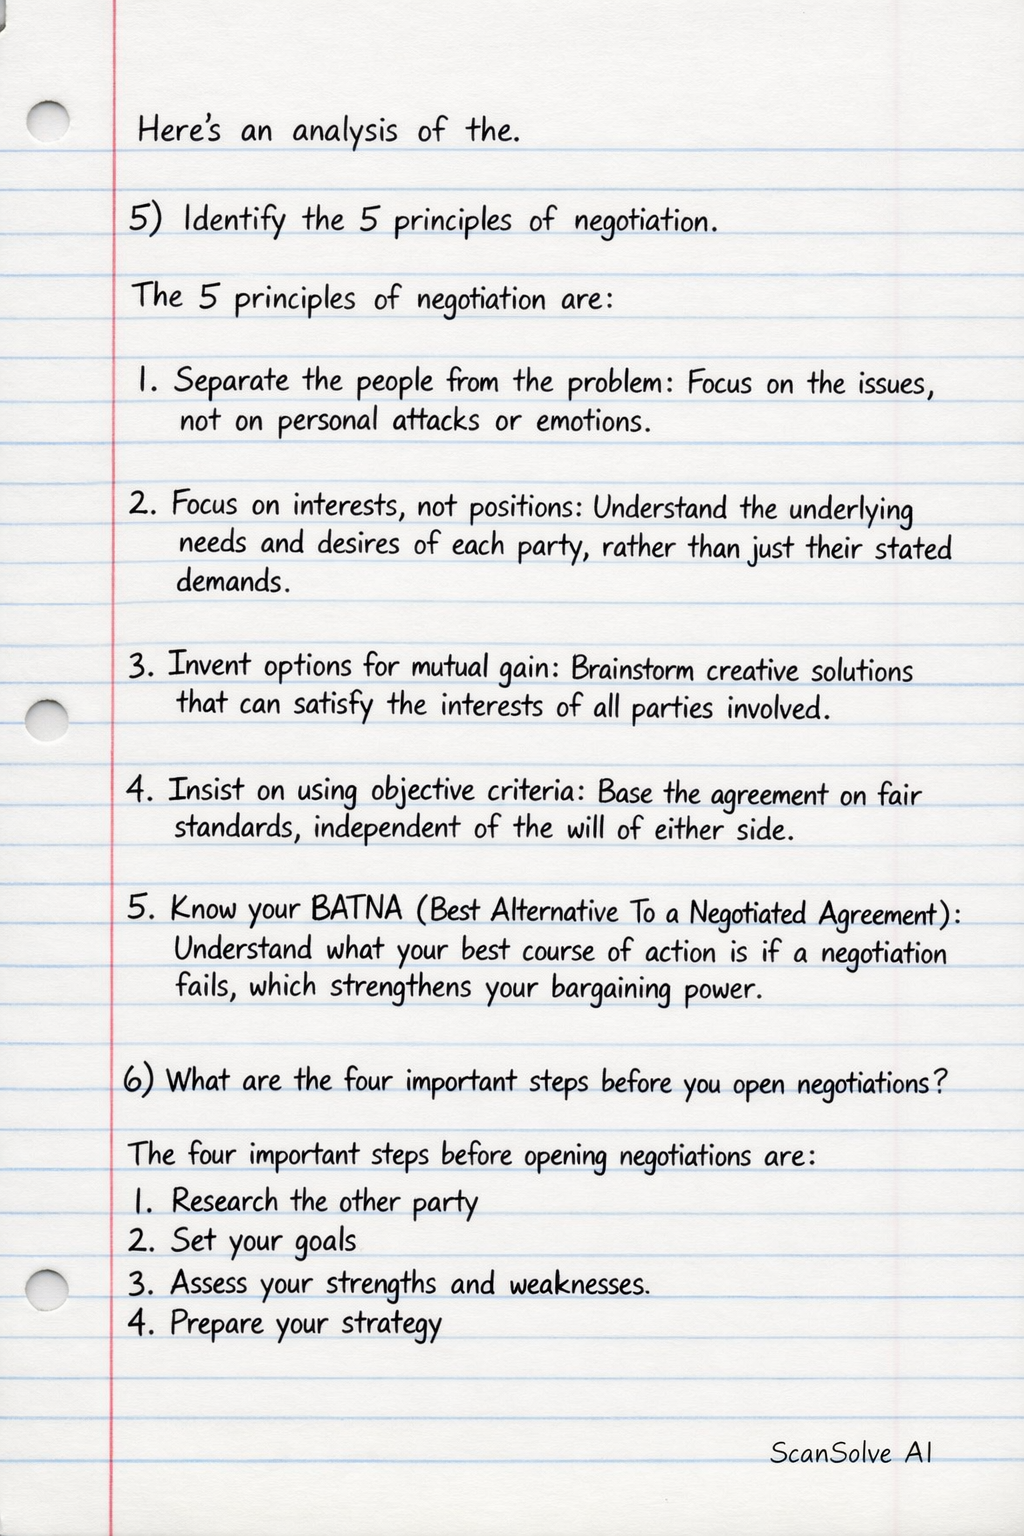 Here's an analysis of the.
5) Identify the 5 principles of negotiation.
The 5 principles of negotiation are:
1. Separate the people from the problem: Focus on the issues,
not on personal attacks or emotions.
2. Focus on interests, not positions: Understand the underlying
needs and desires of each party, rather than just their stated
demands.
3. Invent options for mutual gain: Brainstorm creative solutions
that can satisfy the interests of all parties involved.
4. Insist on using objective criteria: Base the agreement on fair
standards, independent of the will of either side.
5. Know your BATNA (Best Alternative To a Negotiated Agreement):
Understand what your best course of action is if a negotiation
fails, which strengthens your bargaining power.
6) What are the four important steps before you open negotiations?
The four important steps before opening negotiations are:
1. Research the other party
2. Set your goals
3. Assess your strengths and weaknesses.
4. Prepare your strategy
ScanSolve AI